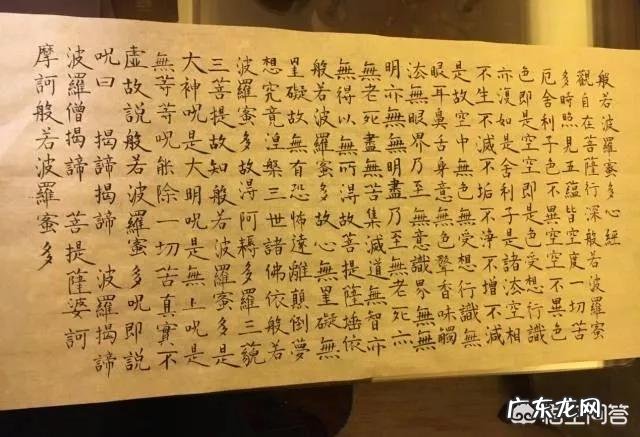 般若波羅蜜多心經
觀自在菩薩行深般若波羅蜜
多時照見五蘊皆空度一切苦
厄舍利子色不異空空不異色
色即是空空即是色受想行識
亦復如是舍利子是諸法空相
不生不滅不垢不淨不增不減
是故空中無色無受想行識無
眼耳鼻舌身意無色聲香味觸
法無眼界乃至無意識界無無
明亦無無明盡乃至無老死亦
無老死盡無苦集滅道無智亦
無得以無所得故菩提薩埵依
般若波羅蜜多故心無罣礙無
罣礙故無有恐怖遠離顛倒夢
想究竟涅槃三世諸佛依般若
波羅蜜多故得阿耨多羅三藐
三菩提故知般若波羅蜜多是
大神呪是大明呪是無上呪是
無等等呪能除一切苦真實不
虛故説般若波羅蜜多呪即説
呪曰 揭諦揭諦 波羅揭諦
波羅僧揭諦 菩提薩婆訶
摩訶般若波羅蜜多
悟空问答
广东龙网